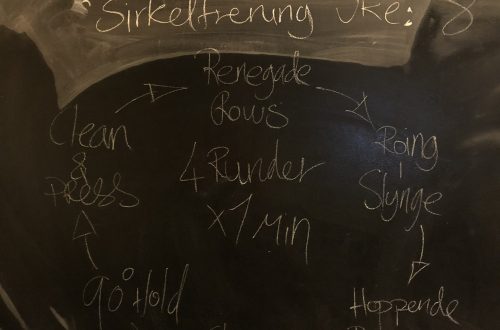 Sirkeltrening Uke: 8
Renegade
Rows
Clean
&
Press
4 Runder
x 1 Min
Roing
i
Slynge
90° Hold
Hoppende